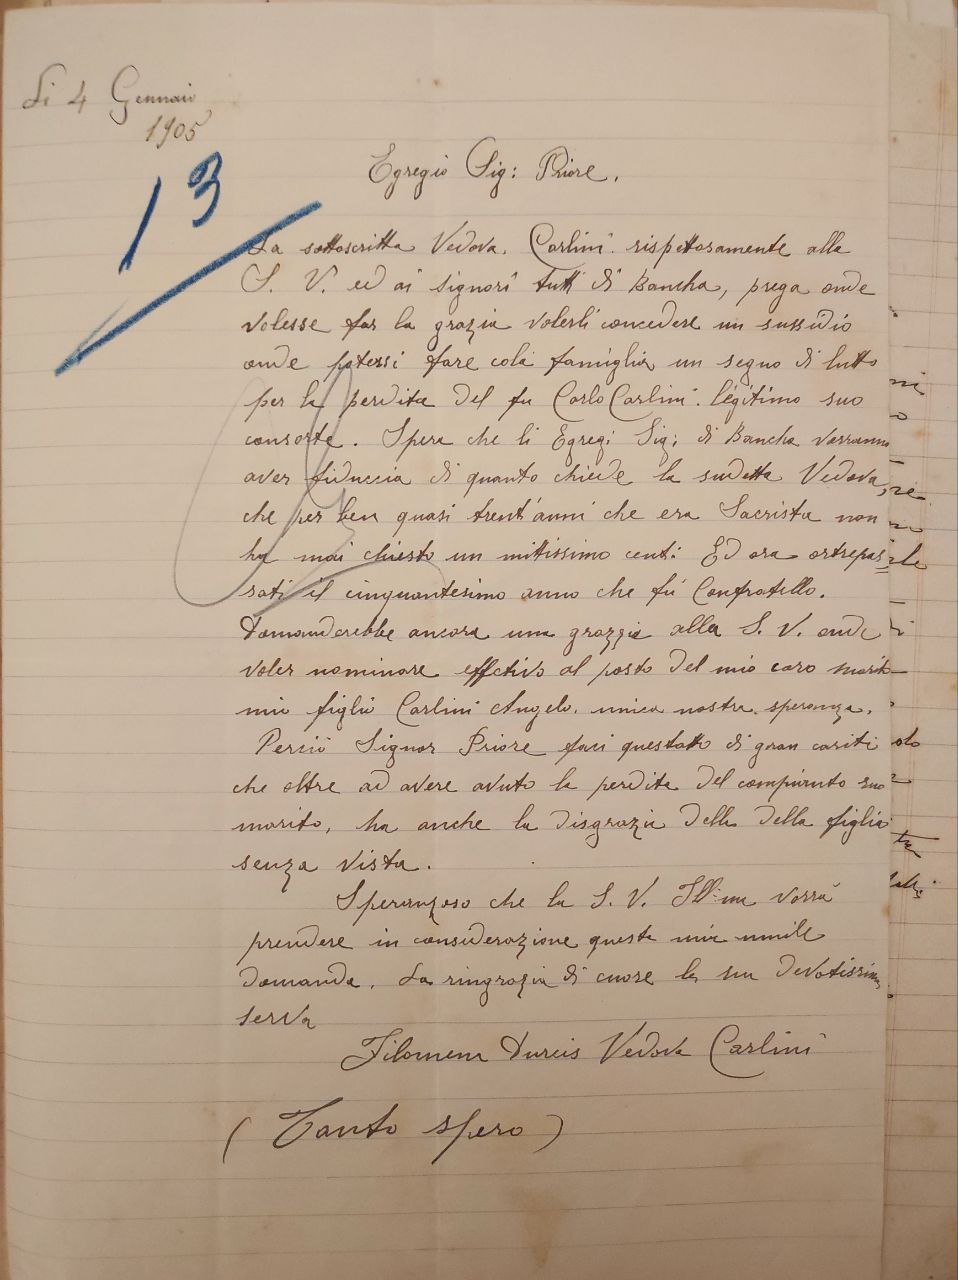 Li 4 Gennaio
1905
13
Egregio Sig: Priore.
La sottoscritta Vedova. Carlini. rispettosamente alla
S. V. ed ai signori tutti di Bancha, prega onde
volesse far la grazia volerli concedere un sussidio
onde potersi fare cola famiglia un segno di lutto
per la perdita del fu Carlo Carlini. légitimo suo
consorte. Spera che li Egregi Sig: di Bancha vorranno
aver fiduccia di quanto chiede la sudetta Vedova,
che per ben quasi trent'anni che era Sacrista non
ha mai chiesto un mittissimo cent: Ed ora ortrepas=
sati il cinquantesimo anno che fú Confratello.
Domanderebbe ancora una grazzia alla S. V. onde
voler nominare effetivo al posto del mio caro marito
mio figlio Carlini Angelo. unica nostra speranza.
Perciò Signor Priore faci questatto di gran cariti
che oltre ad avere avuto la perdita del compianto suo
marito, ha anche la disgrazia della della figlia
senza vista.
Speranzoso che la S. V. Ill:ma vorrà
prendere in considerazione questa mia umile
domanda. La ringrazia di cuore la sua devotissima
serva
Filomena Vedova Carlini
(Tanto spero)